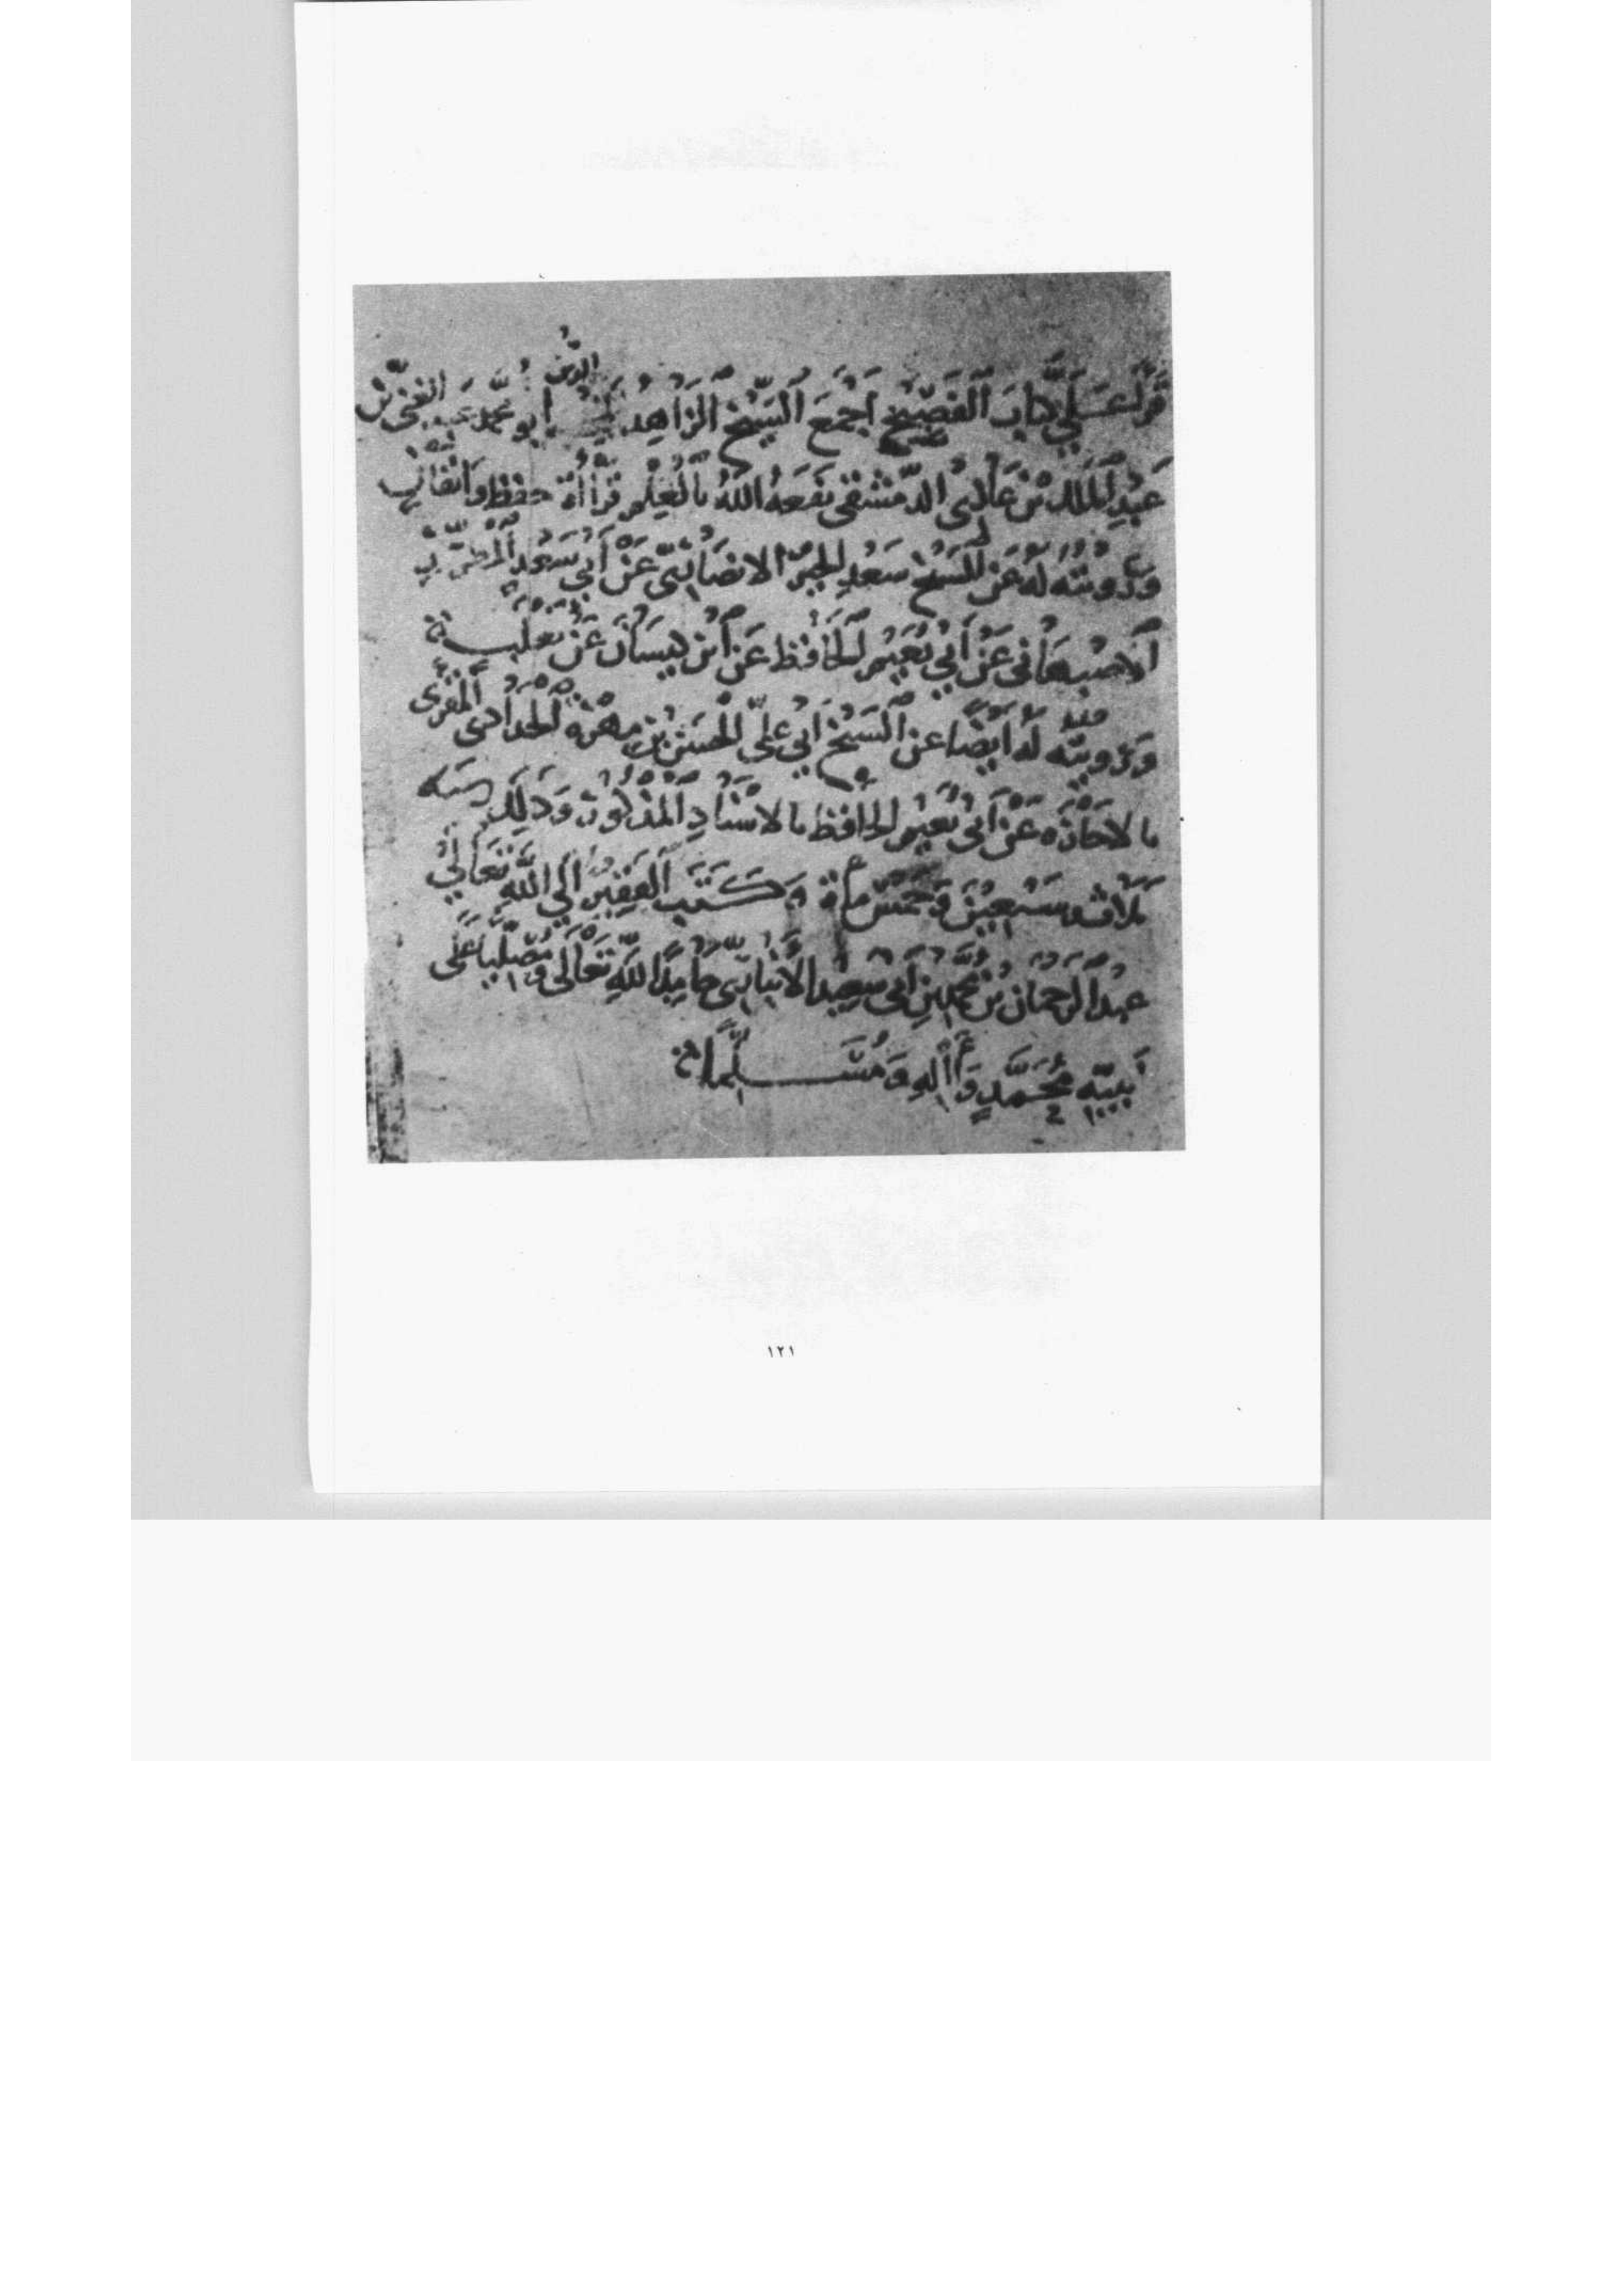 قرأ عَلَيَّ كتابَ الفَصِيْحِ أَجْمَعَ الشَّيْخُ الزَّاهِدُ الدّين أبو محمد عبد الغني بن
عَبْدِ المَلِك بْن الدّمشقي نَفَعَهُ اللهُ بالعِلْمِ قِرَاأةَ حِفْظٍ وَإتْقَانٍ
وَرَوَيْتُه لَهُ عَن الشَّيْخ سَعْدِ الخَيرِ الانصَاريّ عَنْ أَبي سَعْدٍ المُطَرِّز
الاصْبهَاني عَنْ أَبي نُعَيْمٍ الحَافِظ عَن ابْن كيسَانَ عَنْ ثعلب
وَرَوَيتُه لَهُ أيْضًا عَن الشَّيْخِ أَبي عَليّ الحَسَن بن الحَدّادِ المُقرِئ
بالاجَازَه عَنْ أَبي نُعَيْمٍ الحافِظ بالاسْنَادِ المَذْكُور وَذلِكَ سَنه
ثلاث وسَبْعِيْنَ وَخَمْس مأة وَكَتَبَ الفَقِيْرُ إلَى اللهِ تَعَالَى
عبْدُ الرّحمان بن مُحَمَّد بن أبي سعِيْدٍ الأَنْبَاريّ حَامِدًا للهِ تَعَالى وَمُصَلّيًا عَلَى
نَبِيّه مُحَمَّدٍ وَآلِهِ وَمُسَلِّمًا
١٢١